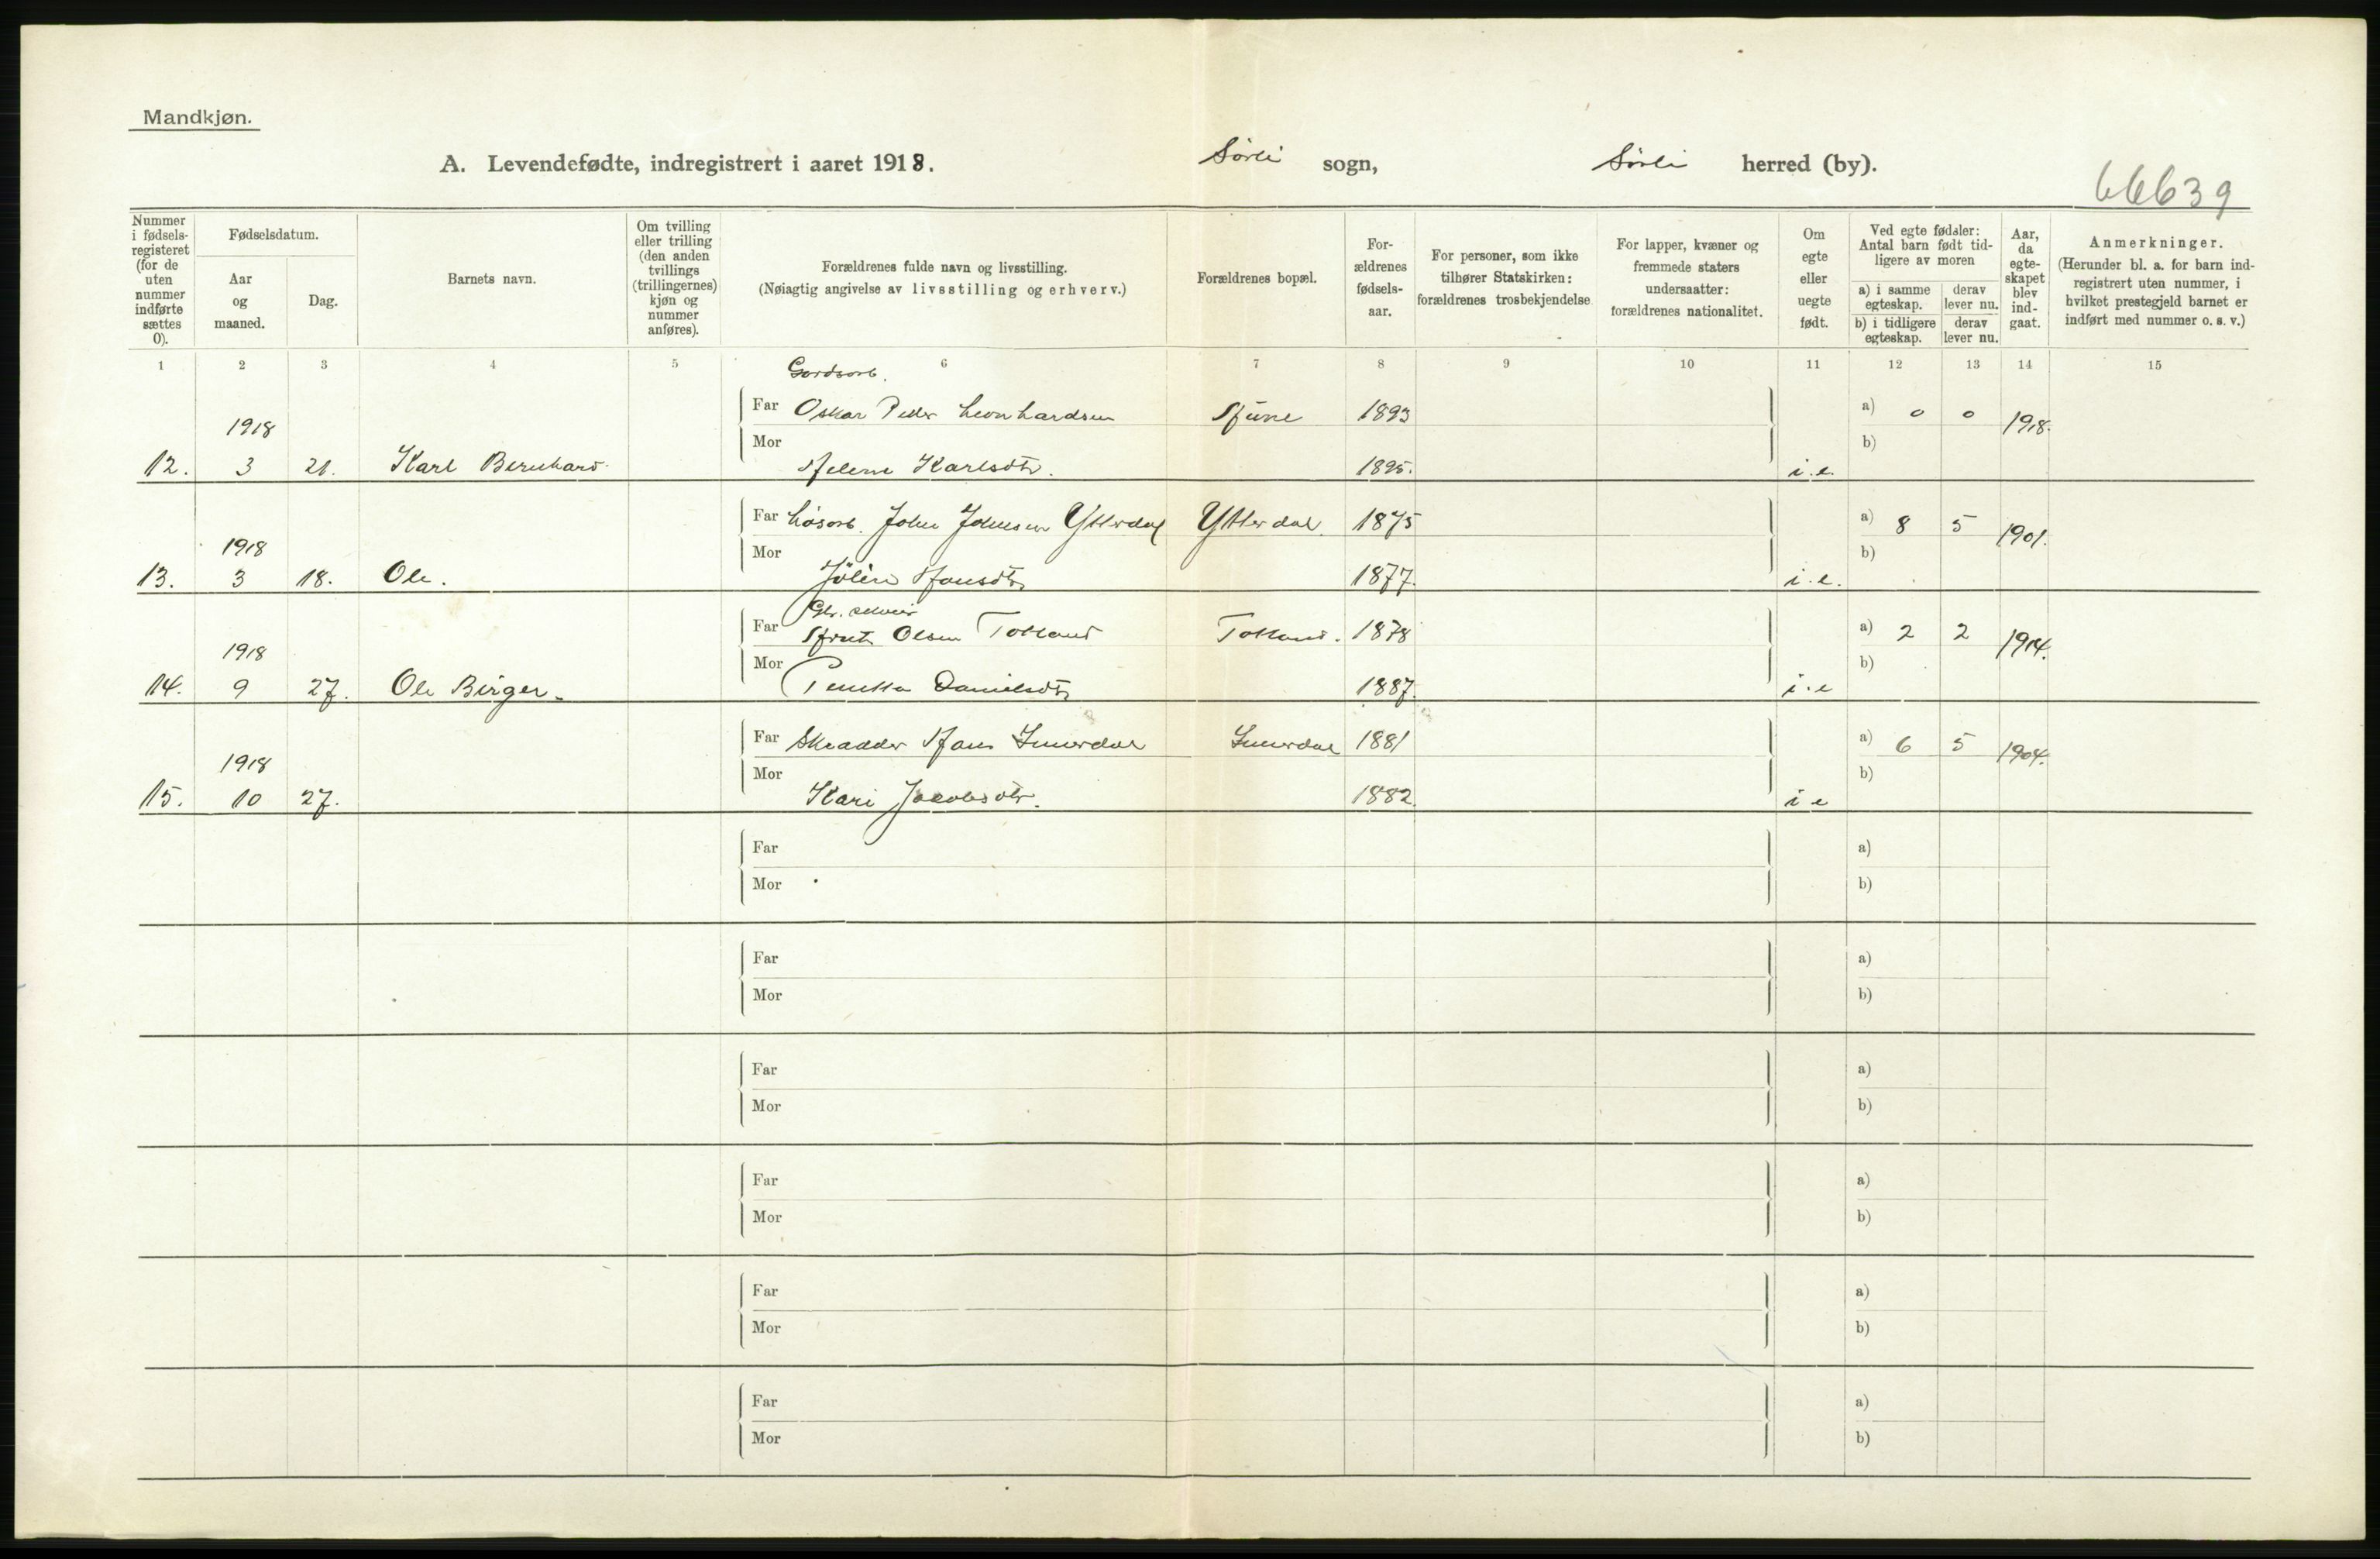 Mandkjøn.
A. Levendefødte, indregistrert i aaret 1918. Sörli sogn, Sörli herred (by).
66639
Nummer i fødselsregisteret (for de uten nummer indførte sættes 0).
Fødselsdatum.
Aar og maaned.
Dag.
Barnets navn.
Om tvilling eller trilling (den anden tvillings (trillingernes) kjøn og nummer anføres).
Forældrenes fulde navn og livsstilling.
(Nøiagtig angivelse av livsstilling og erhverv.)
Forældrenes bopæl.
Forældrenes fødselsaar.
For personer, som ikke tilhører Statskirken: forældrenes trosbekjendelse
For lapper, kvæner og fremmede staters undersaatter: forældrenes nationalitet.
Om egte eller uegte født.
Ved egte fødsler: Antal barn født tidligere av moren
a) i samme egteskap.
derav lever nu.
b) i tidligere egteskap.
derav lever nu.
Aar, da egteskapet blev indgaat.
Anmerkninger.
(Herunder bl. a. for barn indregistrert uten nummer, i hvilket prestegjeld barnet er indført med nummer o. s. v.)
1 2 3 4 5 6 7 8 9 10 11 12 13 14 15
Gordsarb.
Far Oskar Peder Leonhardsen 1893 a) 0 0 1918.
1918
Mor b)
12. 3 21. Karl Bernhard Helene Karlsdtr. 1895. i.e.
Far Lösarb. John Johnsen Ytterdal Ytterdal. 1875 a) 8 5 1901.
1918
Mor b)
13. 3 18. Ole. Hansdtr 1877. i.e.
Far Olsen Totland Totland. 1878 a) 2 2 1914.
1918
Mor b)
14. 9 27. Ole Birger. Danielsdtr 1887. i.e
Far Skradder Hans Inderdal Inderdal 1881 a) 6 5 1904.
1918
Mor b)
15. 10 27. Kari Jacobsdtr. 1882. i e
Far a)
Mor b)
Far a)
Mor b)
Far a)
Mor b)
Far a)
Mor b)
Far a)
Mor b)
Far a)
Mor b)